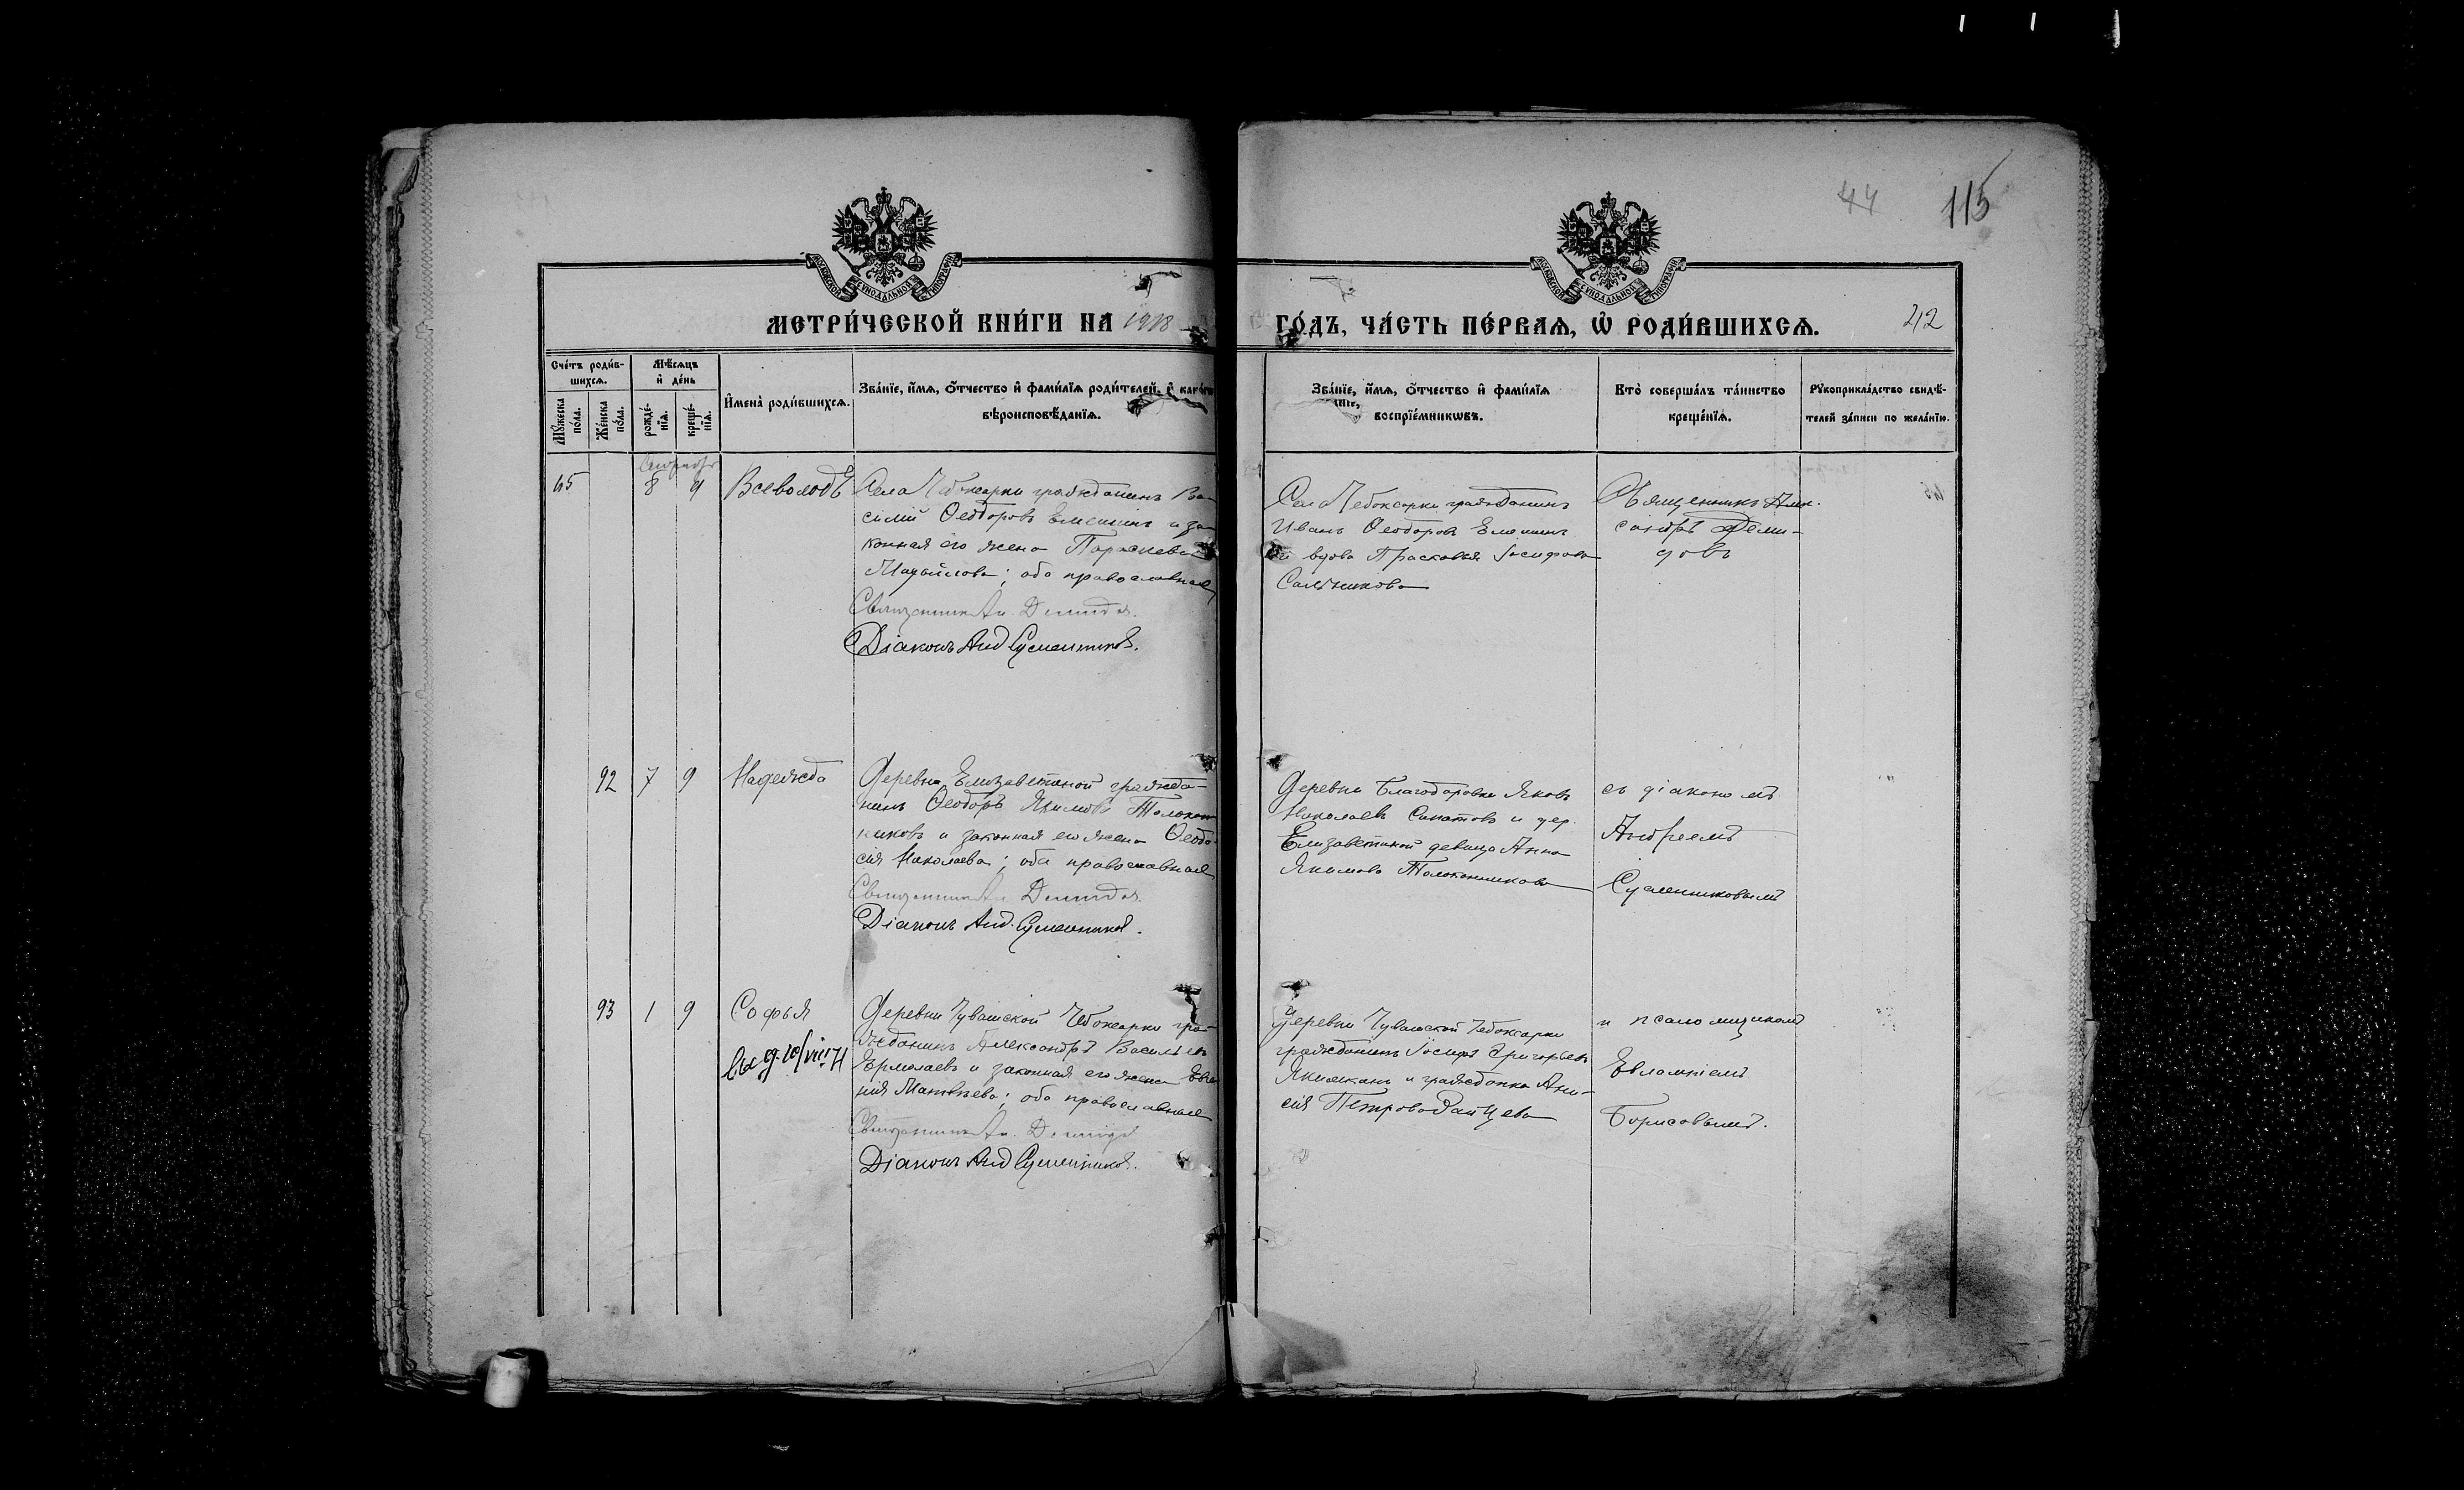 44 115
МОСКОВСКОЙ СѴНОДАЛЬНОЙ ТИПОГРАФІИ
МОСКОВСКОЙ СѴНОДАЛЬНОЙ ТИПОГРАФІИ
МЕТРИ́ЧЕСКОЙ КНИ́ГИ НА 1918
ГО́ДЪ, ЧА́СТЬ ПЕ́РВАѦ, Ѽ РОДИ́ВШИХСѦ. 42
Сче́тъ роди́в-
шихсѧ.
Мѣ́сѧцъ
и҆ де́нь
Мꙋ́жеска
по́ла.
Же́нска
по́ла.
рожде́-
нїѧ.
креще́-
нїѧ.
И҆мена̀ роди́вшихсѧ.
Зва́нїе, и҆́мѧ, ѻ҆́тчество и҆ фами́лїѧ роди́телей, и҆
вѣроисповѣ́данїѧ.
Зва́нїе, и҆́мѧ, ѻ҆́тчество и҆ фами́лїѧ
воспрїе́мникѡвъ.
Кто̀ соверша́лъ та́инство
креще́нїѧ.
Рꙋкоприкла́дство свидѣ́-
телей за́писи по жела́нїю.
Сентябрь
45 8 9 Всеволодъ
Села Чебоксарки гражданинъ Ва-
силій Ѳеодоровъ Елешинъ и за-
конная его жена Параскева
Михайлова; оба православные
Священникъ Ал. Демидов.
Діаконъ Анд. Сусленников.
Села Чебоксарки гражданинъ
Иванъ Ѳеодоровъ Елешинъ
и вдова Прасковья Іосифова
Сальникова
Священникъ Алек-
сандръ Деми-
довъ
92 7 9 Надежда
Деревни Елизаветиной гражда-
нинъ Ѳеодоръ Якимовъ Толокон-
никовъ и законная его жена Ѳеодо-
сія Николаева; оба православные
Священникъ Ал. Демидов.
Діаконъ Анд. Сусленников.
Деревни Благодаровки Яковъ
Николаевъ Сипатовъ и дер.
Елизаветиной девица Анна
Якимова Толоконникова
съ діакономъ
Андреемъ
Сусленниковымъ
93 1 9 Софья
Деревни Чувашской Чебоксарки гра-
жданинъ Александръ Васильевъ
Ермолаевъ и законная его жена Евге-
нія Матвѣева; оба православные
Священникъ Ал. Демидов
Діаконъ Анд. Сусленников.
Деревни Чувашской Чебоксарки
гражданинъ Іосифъ Григорьевъ
Якимкинъ и гражданка Ани-
сія Петрова Зайцева
и псаломщикомъ
Евлампіемъ
Борисовымъ.